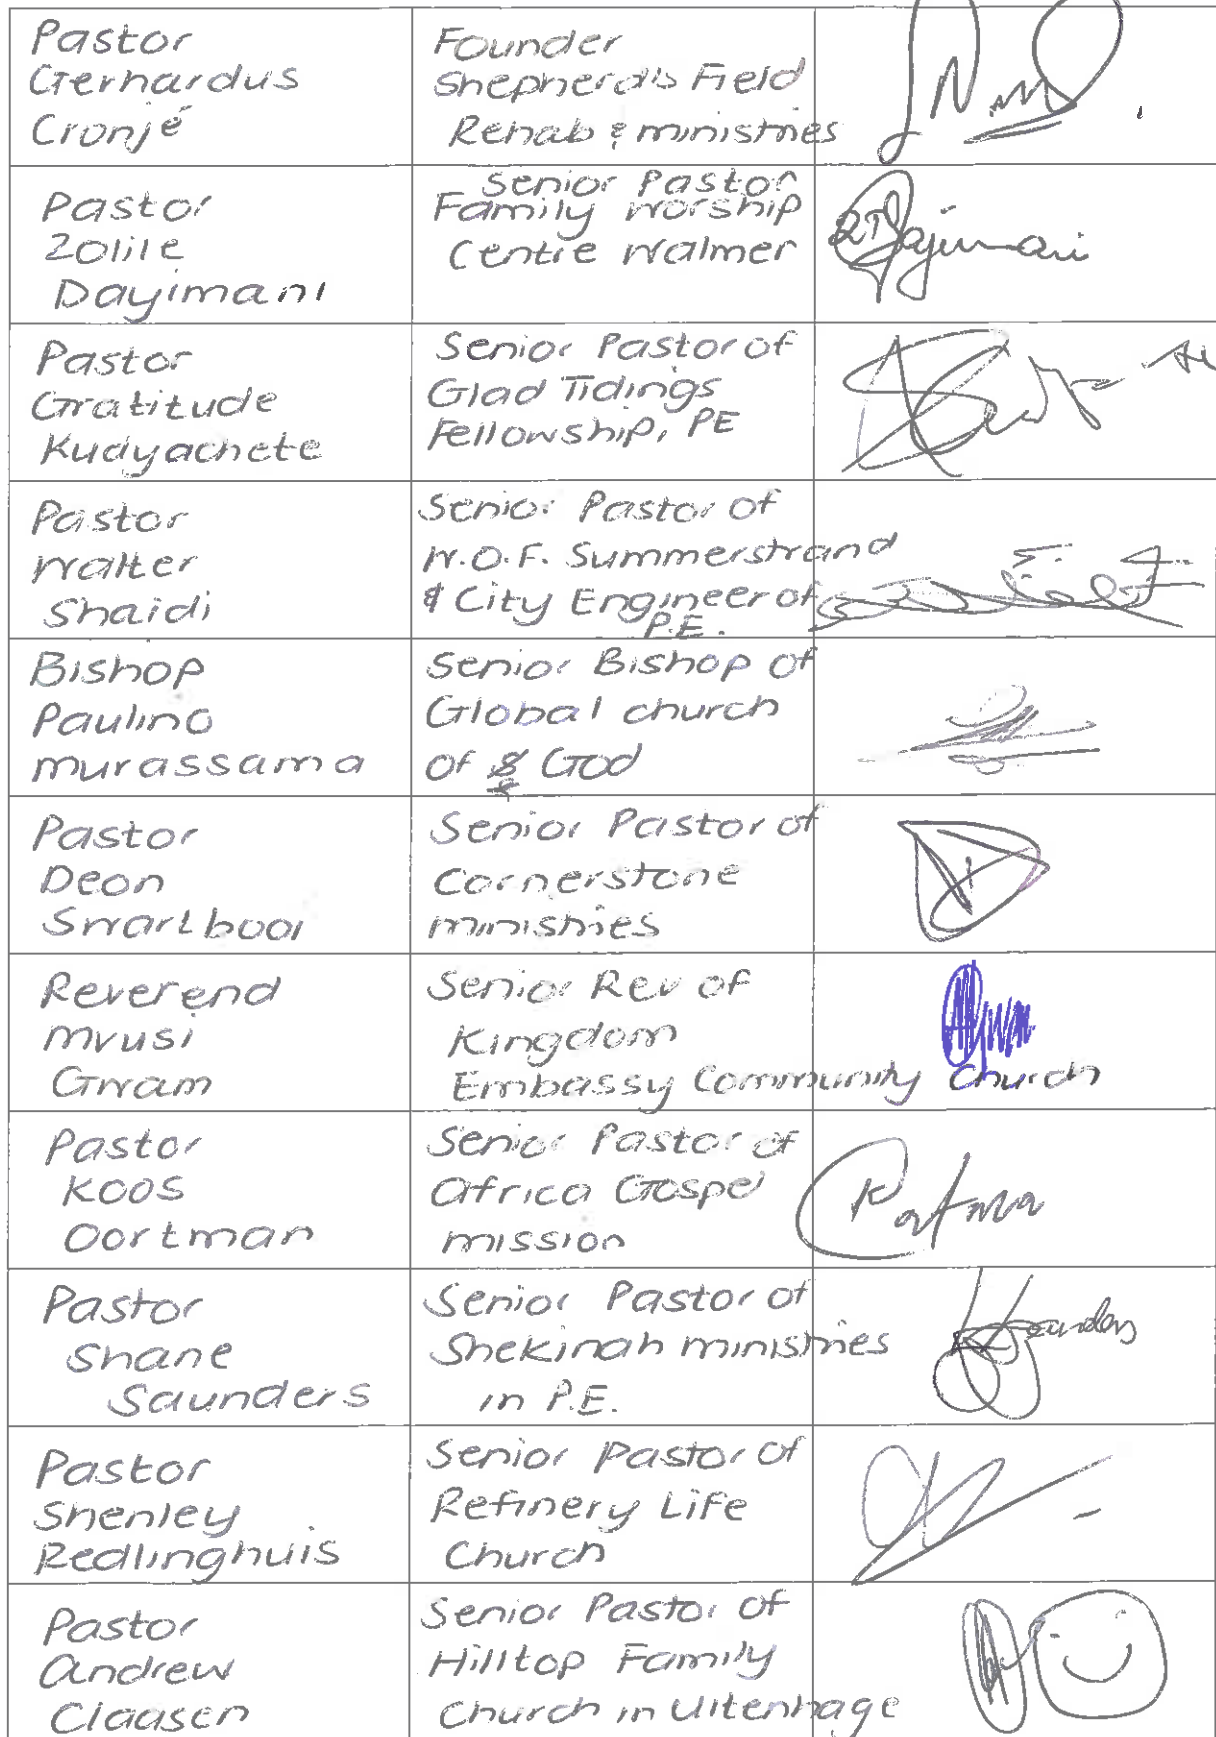 Pastor
Gerhardus
Cronjé
Founder
Shepherds Field
Rehab & ministries
Pastor
Zolile
Dayimani
Senior Pastor
Family Worship
Centre Walmer
Pastor
Gratitude
Kudyachete
Senior Pastor of
Glad Tidings
Fellowship, PE
Pastor
Walter
Shaidi
Senior Pastor of
W.O.F. Summerstrand
& City Engineer of
P.E.
Bishop
Paulino
murassama
Senior Bishop of
Global church
of God
Pastor
Deon
Swartbooi
Senior Pastor of
Cornerstone
ministries
Reverend
Mvusi
Gwam
Senior Rev of
Kingdom
Embassy Community Church
Pastor
Koos
Oortman
Senior Pastor of
Africa Gospel
mission
Pastor
Shane
Saunders
Senior Pastor of
Shekinah ministries
in P.E.
Pastor
Shenley
Redlinghuis
Senior Pastor of
Refinery Life
Church
Pastor
Andrew
Claasen
Senior Pastor of
Hilltop Family
Church in Uitenhage